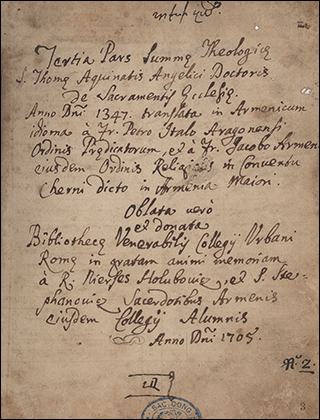 Tertia Pars Summę Theologicę
S. Thomę Aquinatis Angelici Doctoris
de Sacramentis Ecclesię
Anno Dñi 1347. translata in Armenicum
idioma à Fr. Petro Italo Aragonensi
Ordinis Prędicatorum, et à Fr. Jacobo Armeno
eiusdem Ordinis Religioso in Conventu
Cherni dicto in Armenia Maiori.
Oblata verò
et donata
Bibliothecę Venerabilis Collegij Urbani
Romę in gratam animi memoriam
à R. Nierses Holubowicz, et S. Ste-
phanowicz Sacerdotibus Armenis
eiusdem Collegij Alumnis
Anno Dñi 1705.
N.º 2.
3
SAC. CONG.